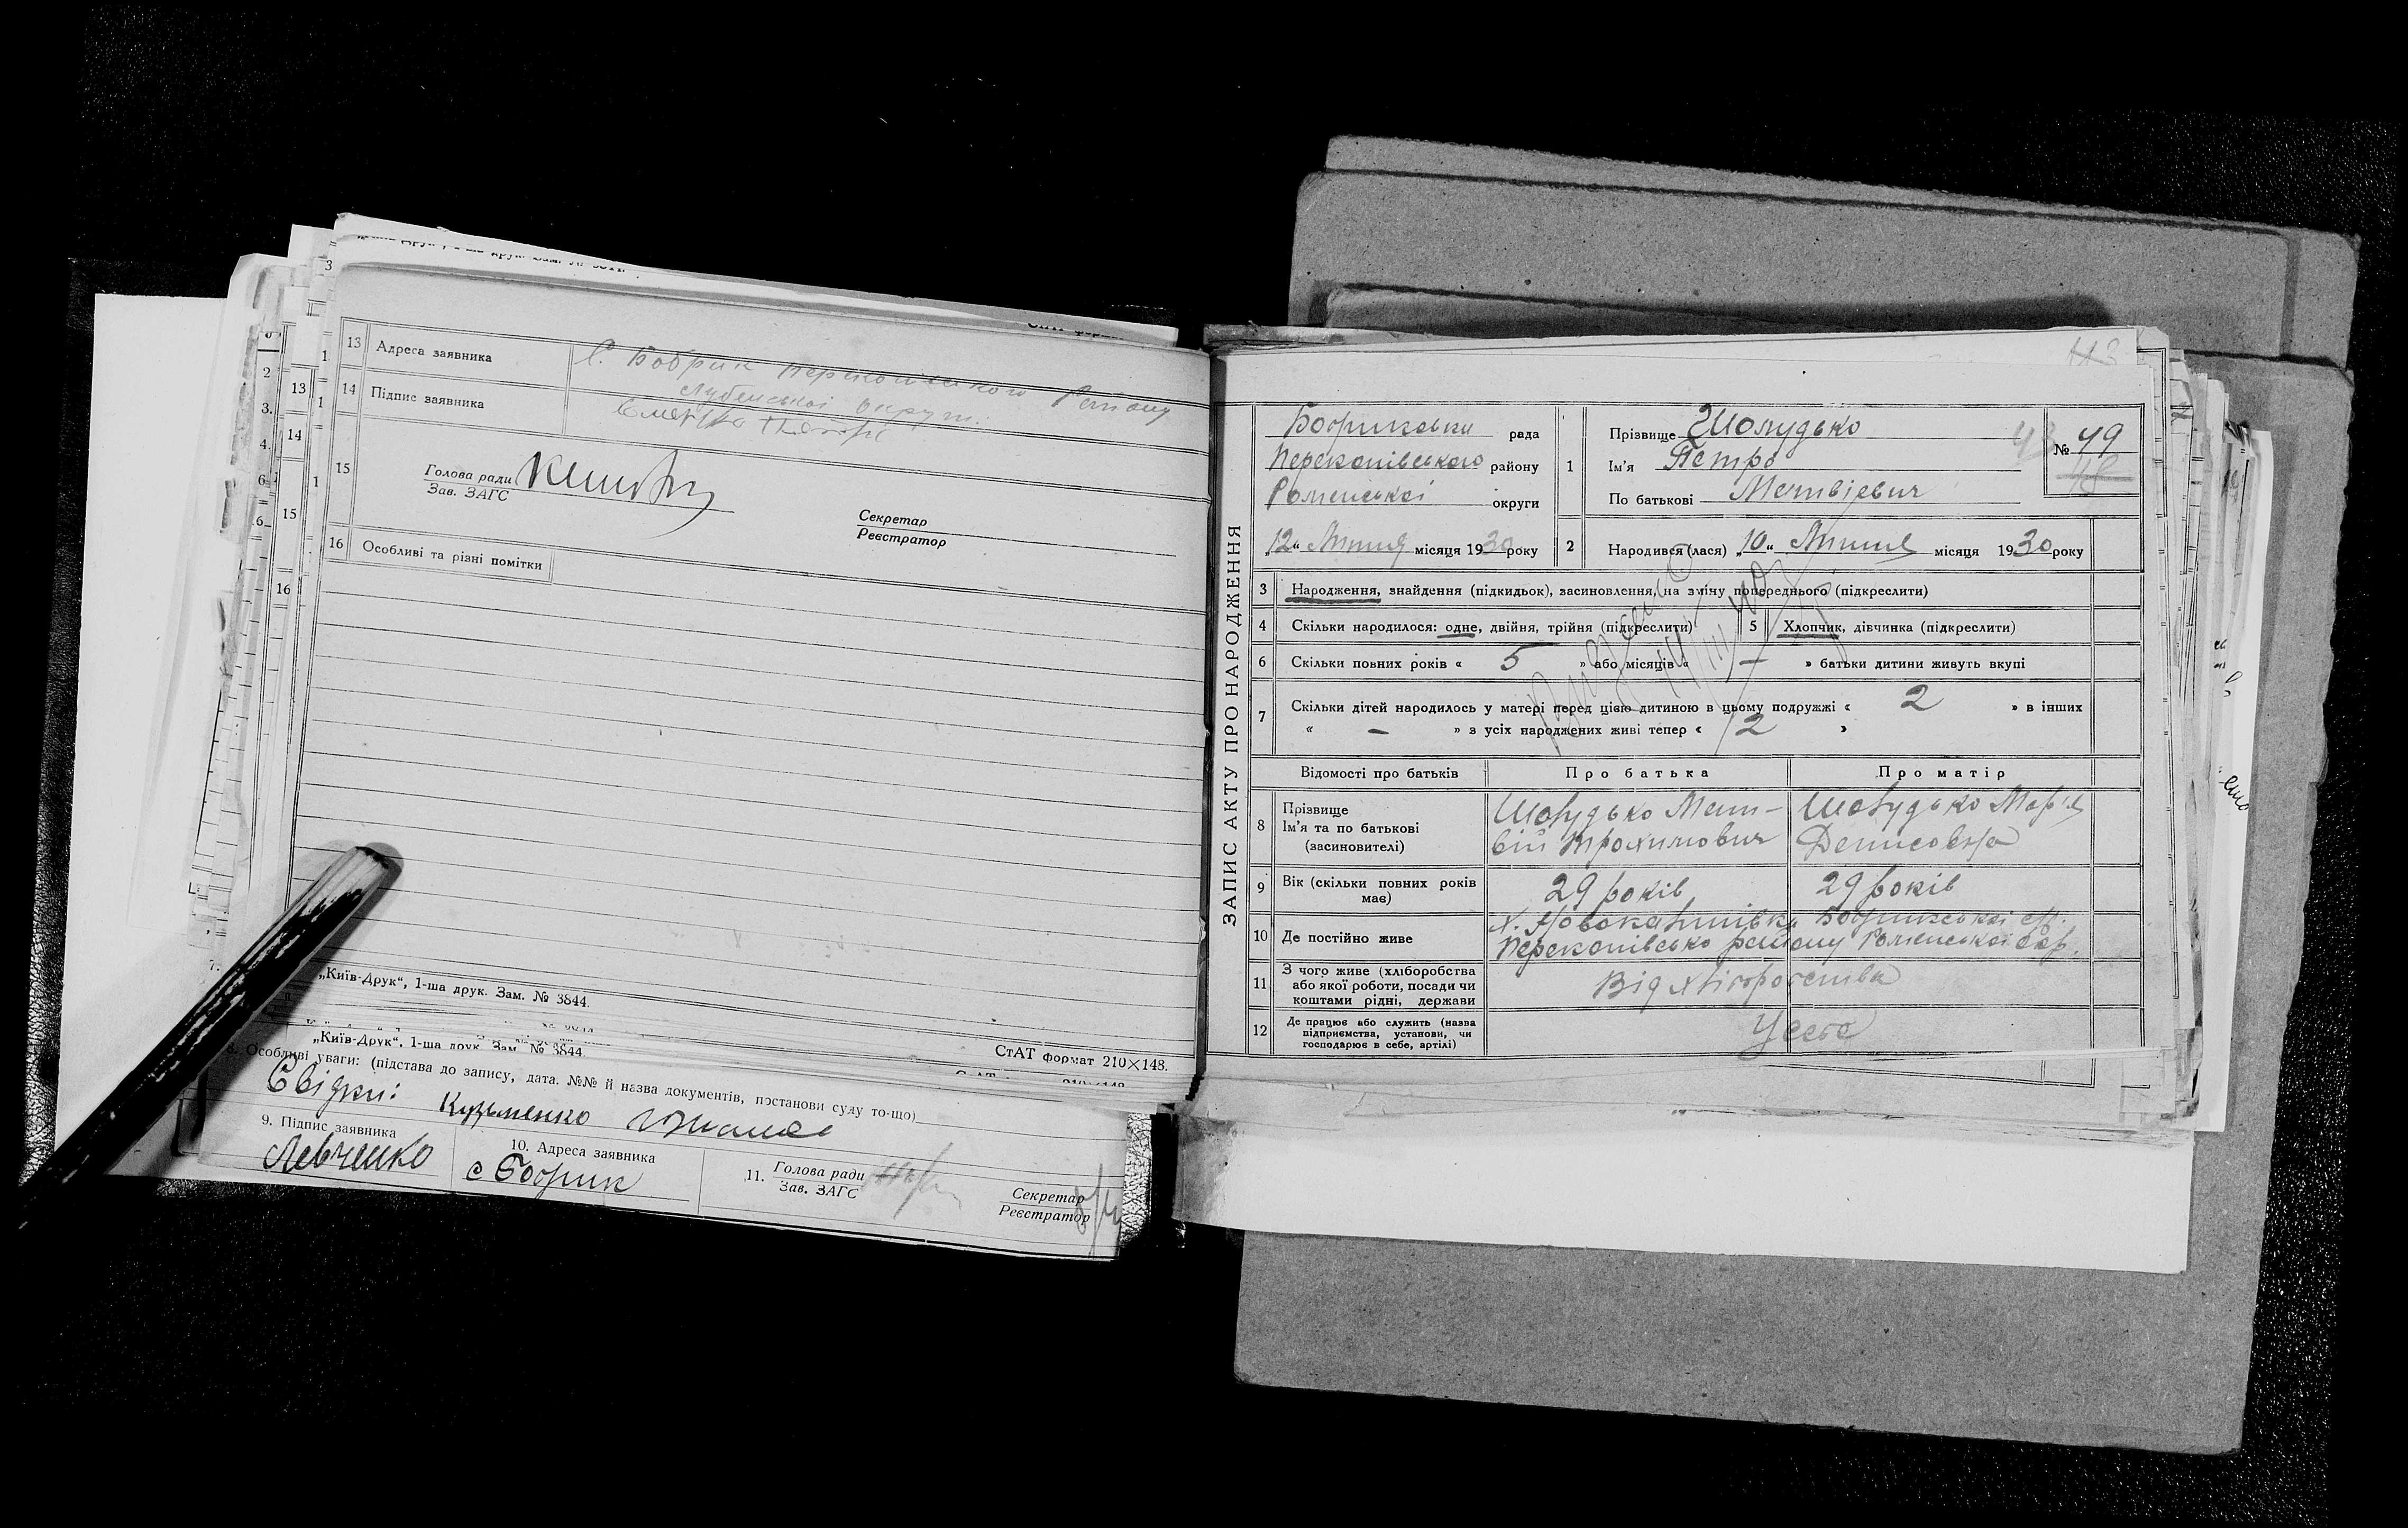 13 Адреса заявника С. Бобрик Перекопівського Району
Лубенської округи.
14 Підпис заявника
15 Голова ради
Зав. ЗАГС
Секретар
Реєстратор
16 Особливі та різні помітки
„Київ-Друк“, 1-ша друк. Зам. № 3844.
„Київ-Друк“, 1-ша друк. Зам. № 3844.
СтАТ формат 210×148.
8. Особливі уваги: (підстава до запису, дата. №№ й назва документів, постанови суду то-що)
Свідки: Кузьменко
9. Підпис заявника
Левченко
10. Адреса заявника
с Бобрик
11. Голова ради
Зав. ЗАГС
Секретар
Реєстратор
ЗАПИС АКТУ ПРО НАРОДЖЕННЯ
Бобриківська рада
Перекопівського району
Роменської округи
„12“ Липня місяця 1930 року
1 Прізвище Шолудько
Ім'я Петро
По батькові Матвієвич
№ 49
48
43
2 Народився (лася) „10“ Липня місяця 1930 року
3 Народження, знайдення (підкидьок), засиновлення, на зміну попереднього (підкреслити)
4 Скільки народилося: одне, двійня, трійня (підкреслити) 5 Хлопчик, дівчинка (підкреслити)
6 Скільки повних років « 5 » або місяців « — » батьки дитини живуть вкупі
7 Скільки дітей народилось у матері перед цією дитиною в цьому подружжі « 2 » в інших
« — » з усіх народжених живі тепер « 2 »
Відомості про батьків Про батька Про матір
8 Прізвище
Ім'я та по батькові
(засиновителі)
Шолудько Мат-
вій Трохимович
Шолудько Марія
Денисовна
9 Вік (скільки повних років
має)
29 років 29 років
10 Де постійно живе
Х. Бобрикської с/р.
Перекопівсько району Роменської окр.
11 З чого живе (хліборобства
або якої роботи, посади чи
коштами рідні, держави
Від хліборобства
12 Де працює або служить (назва
підприємства, установи, чи
господарює в себе, артілі)
У себе